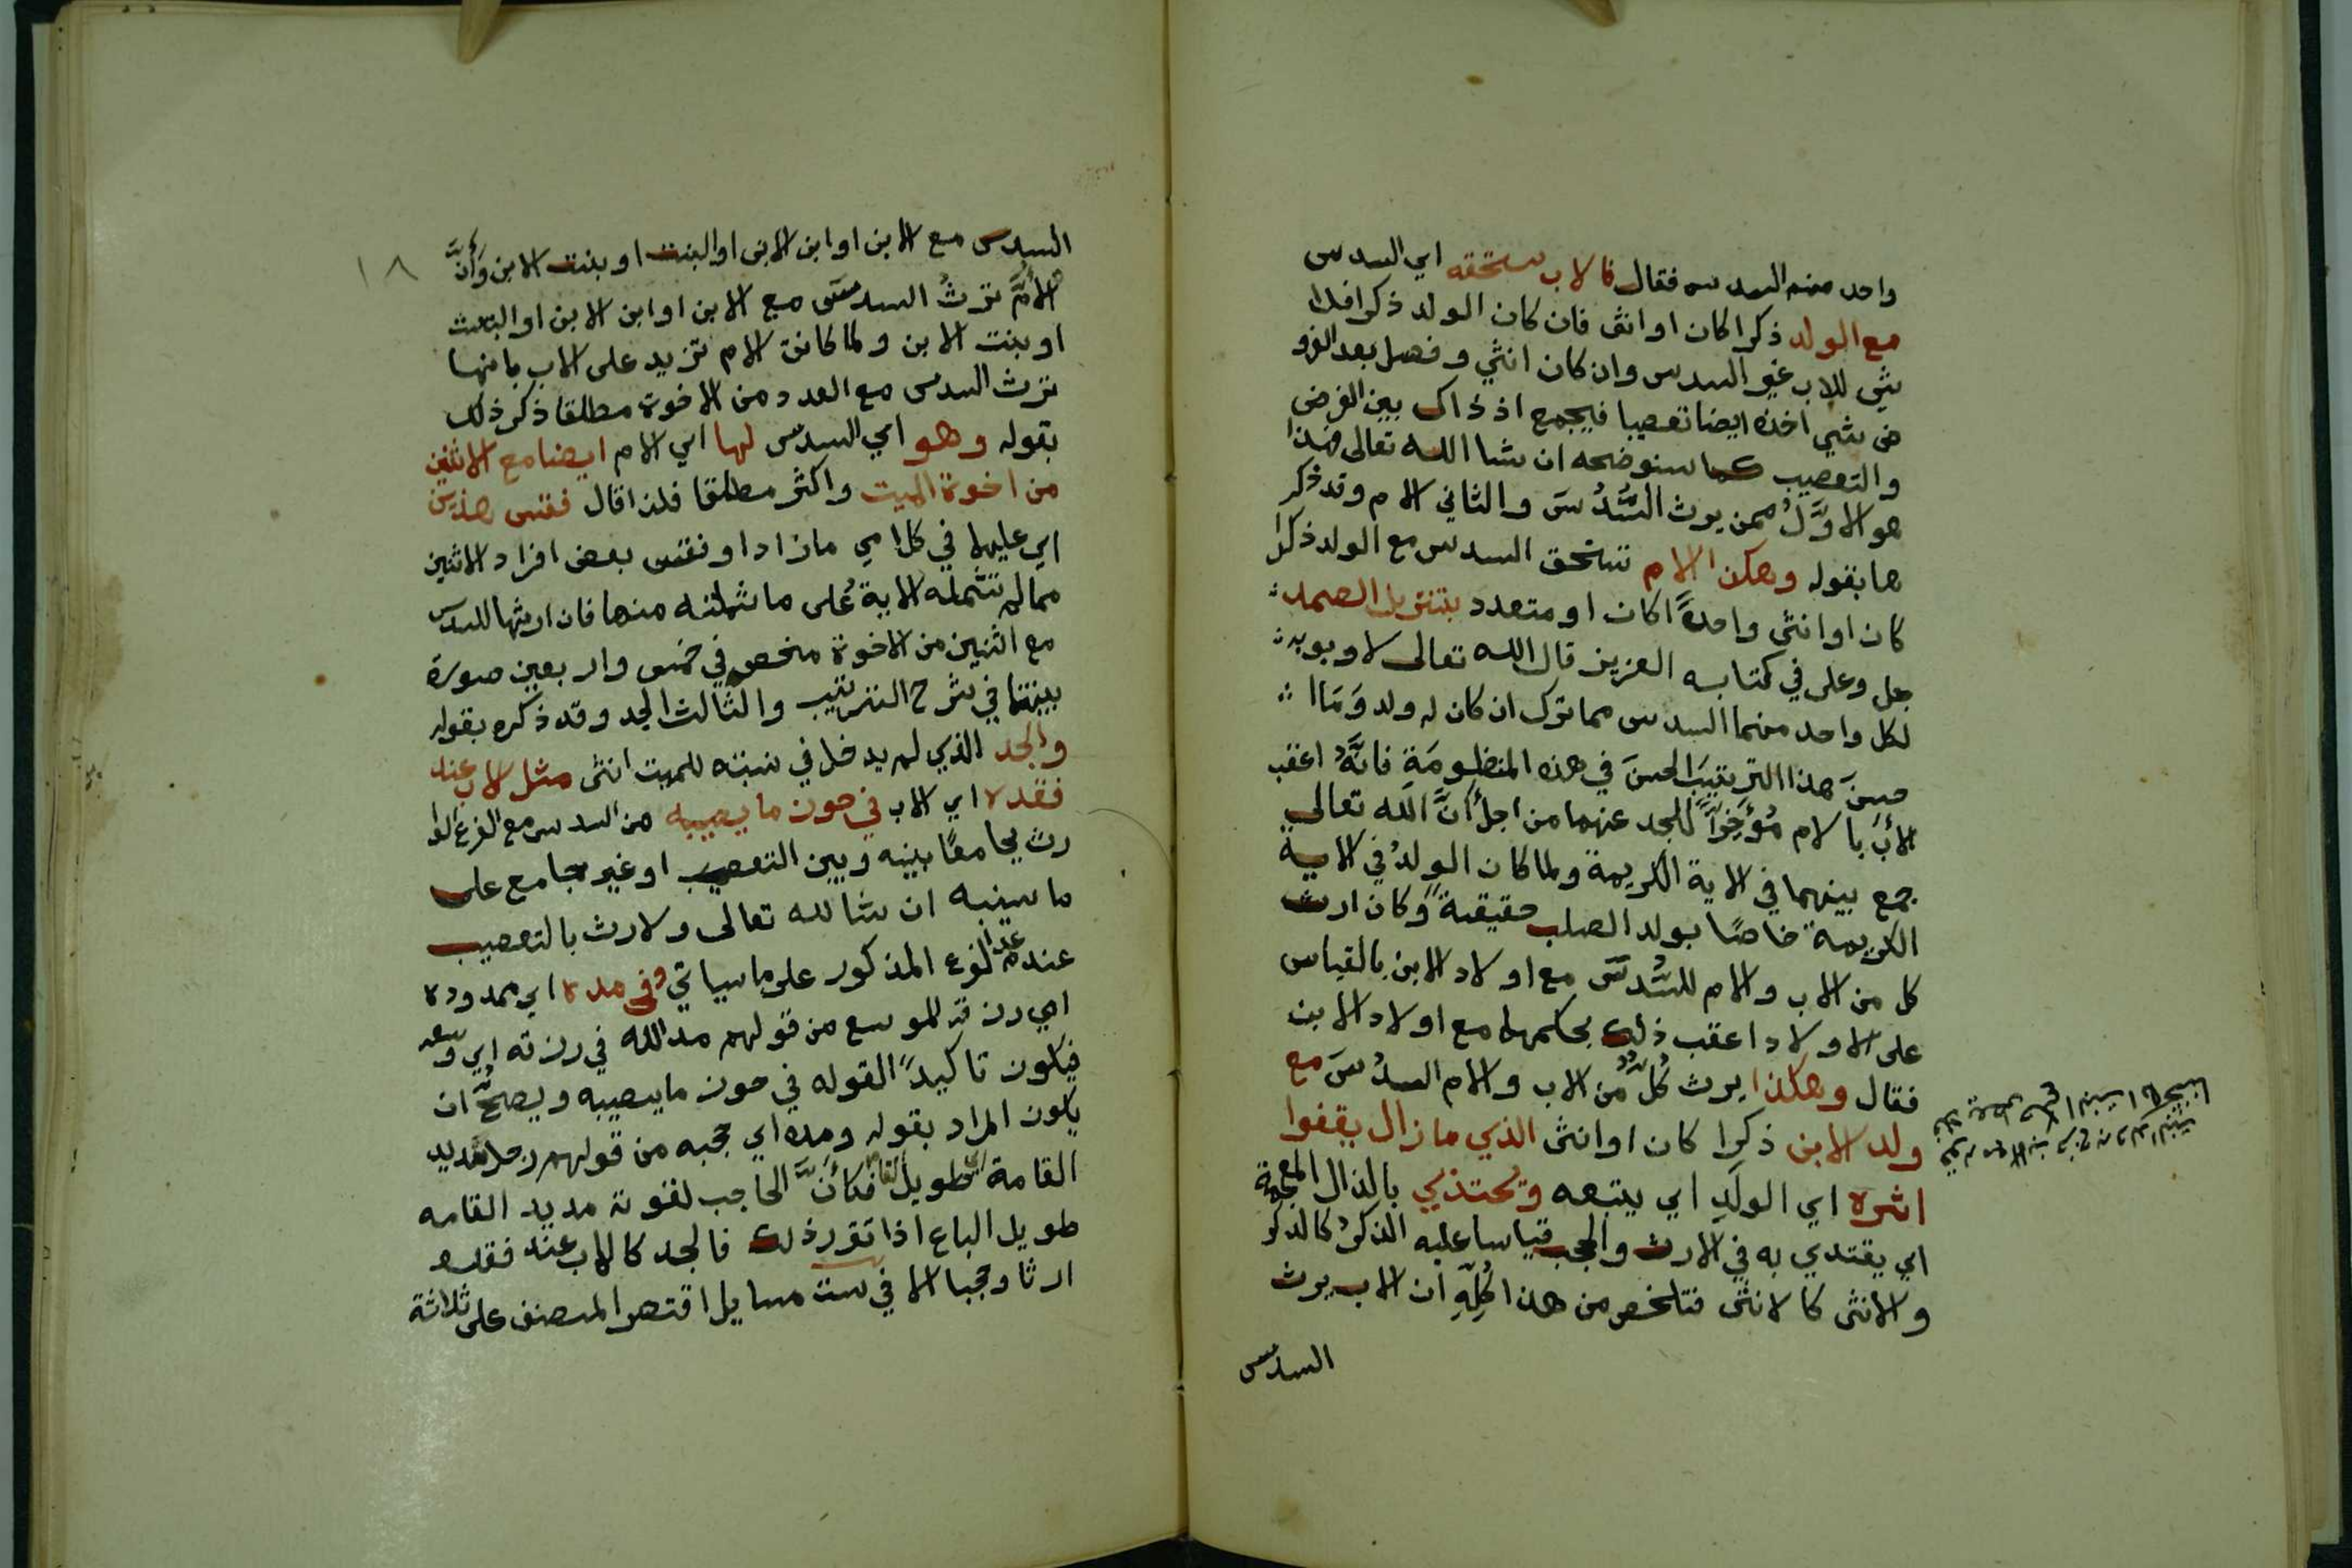 واحد منهم السدس فقال فالاب يستحقه اي السدس
مع الولد ذكرا كان او انثى فان كان الولد ذكرا فلا
شي للاب غير السدس وان كان انثي وفضل بعد الفرو
ض شي اخذه ايضا تعصيبا فيجمع اذ ذاك بين الفرض
والتعصيب كما سنوضحه ان شا الله تعالى فهذا
هو الاوَّلُ ممن يرث السُّدُسَ والثاني الام وقد ذكر
ها بقوله وهكذا الام تستحق السدس مع الولد ذكرا
كان او انثى واحدًا كان او متعدد بتنزيل الصمد
جل وعلى في كتابه العزيز قال الله تعالى لاوبويه
لكل واحد منهما السدس مما ترك ان كان له ولد وَمَا
حسنَ هذا الترتيبَ الحسنَ في هذه المنظومَة فانَّهُ اعقب
الأبَ بالام مُؤَخِّراً للجد عنهما من اجل أنَّ الله تعالى
جمع بينهما في الاية الكريمة ولما كان الولدُ في الاية
الكريمة خاصًا بولد الصلب حقيقةً وكان ارث
كل من الاب والام للسُّدسَ مع اولاد الابن بالقياس
على الاولاد اعقب ذلك بحكمهما مع اولاد الابن
فقال وهكذا يرث كُلٌّ من الاب والام السدُسَ مع
ولد الابن ذكرا كان او انثى الذي مازال يقفوا
اثره اي الولدِ اي يتبعه ويحتذي بالذال المعجمة
اي يقتدي به في الارث والحجب قياسا عليه الذكرُ كالذكر
والانثى كالانثى فتلخص من هذا كُلِّهِ ان الاب يرث
السدس
١٨
السدس مع الابن او ابن الابن او البنت او بنت الابن وَأنَّ
الامَّ ترثُ السدسَ مع الابن او ابن الابن او البنت
او بنت الابن ولما كانت الام تزيد على الاب بانها
ترث السدس مع العدد من الاخوة مطلقا ذكر ذلك
بقوله وهو اي السدس لها اي الام ايضا مع الاثنين
من اخوة الميت واكثر مطلقا فلذا قال فقس هذين
اي عليهما في كلامي مازاد او نقس بعض افراد الاثنين
ممالم تشمله الاية على ما شملته منها فان ارثها للسدس
مع اثنين من الاخوة منحصر في خمس واربعين صورة
بينتها في شرح الترتيب والثالث الجد وقد ذكره بقوله
والجد الذي لم يدخل في نسبته للميت انثى مثل الاب عند
فقده اي الاب في حوز ما يصيبه من السدس مع الفرع الوا
رث يجامعًا بينه وبين التعصيب او غير جامع على
ما سينبه ان شا لله تعالى ولارث بالتعصيب
عند عدم الفرع المذكور على ما سياتي وفي مده اي ممدوده
اي رزقه الموسع من قولهم مد الله في رزقه اي وسعه
فيكون تاكيدًا لقوله في حوز مايصيبه ويصحُّ ان
يكون المراد بقوله ومده اي حجبه من قولهم رجل مديد
القامة اي طويل القامة فكأنَّ الحاجب لقوته مديد القامه
طويل الباع اذا تقرر ذلك فالجد كالاب عند فقده
ارثا وحجبا الا في ست مسايل اقتصر المصنف على ثلاثة